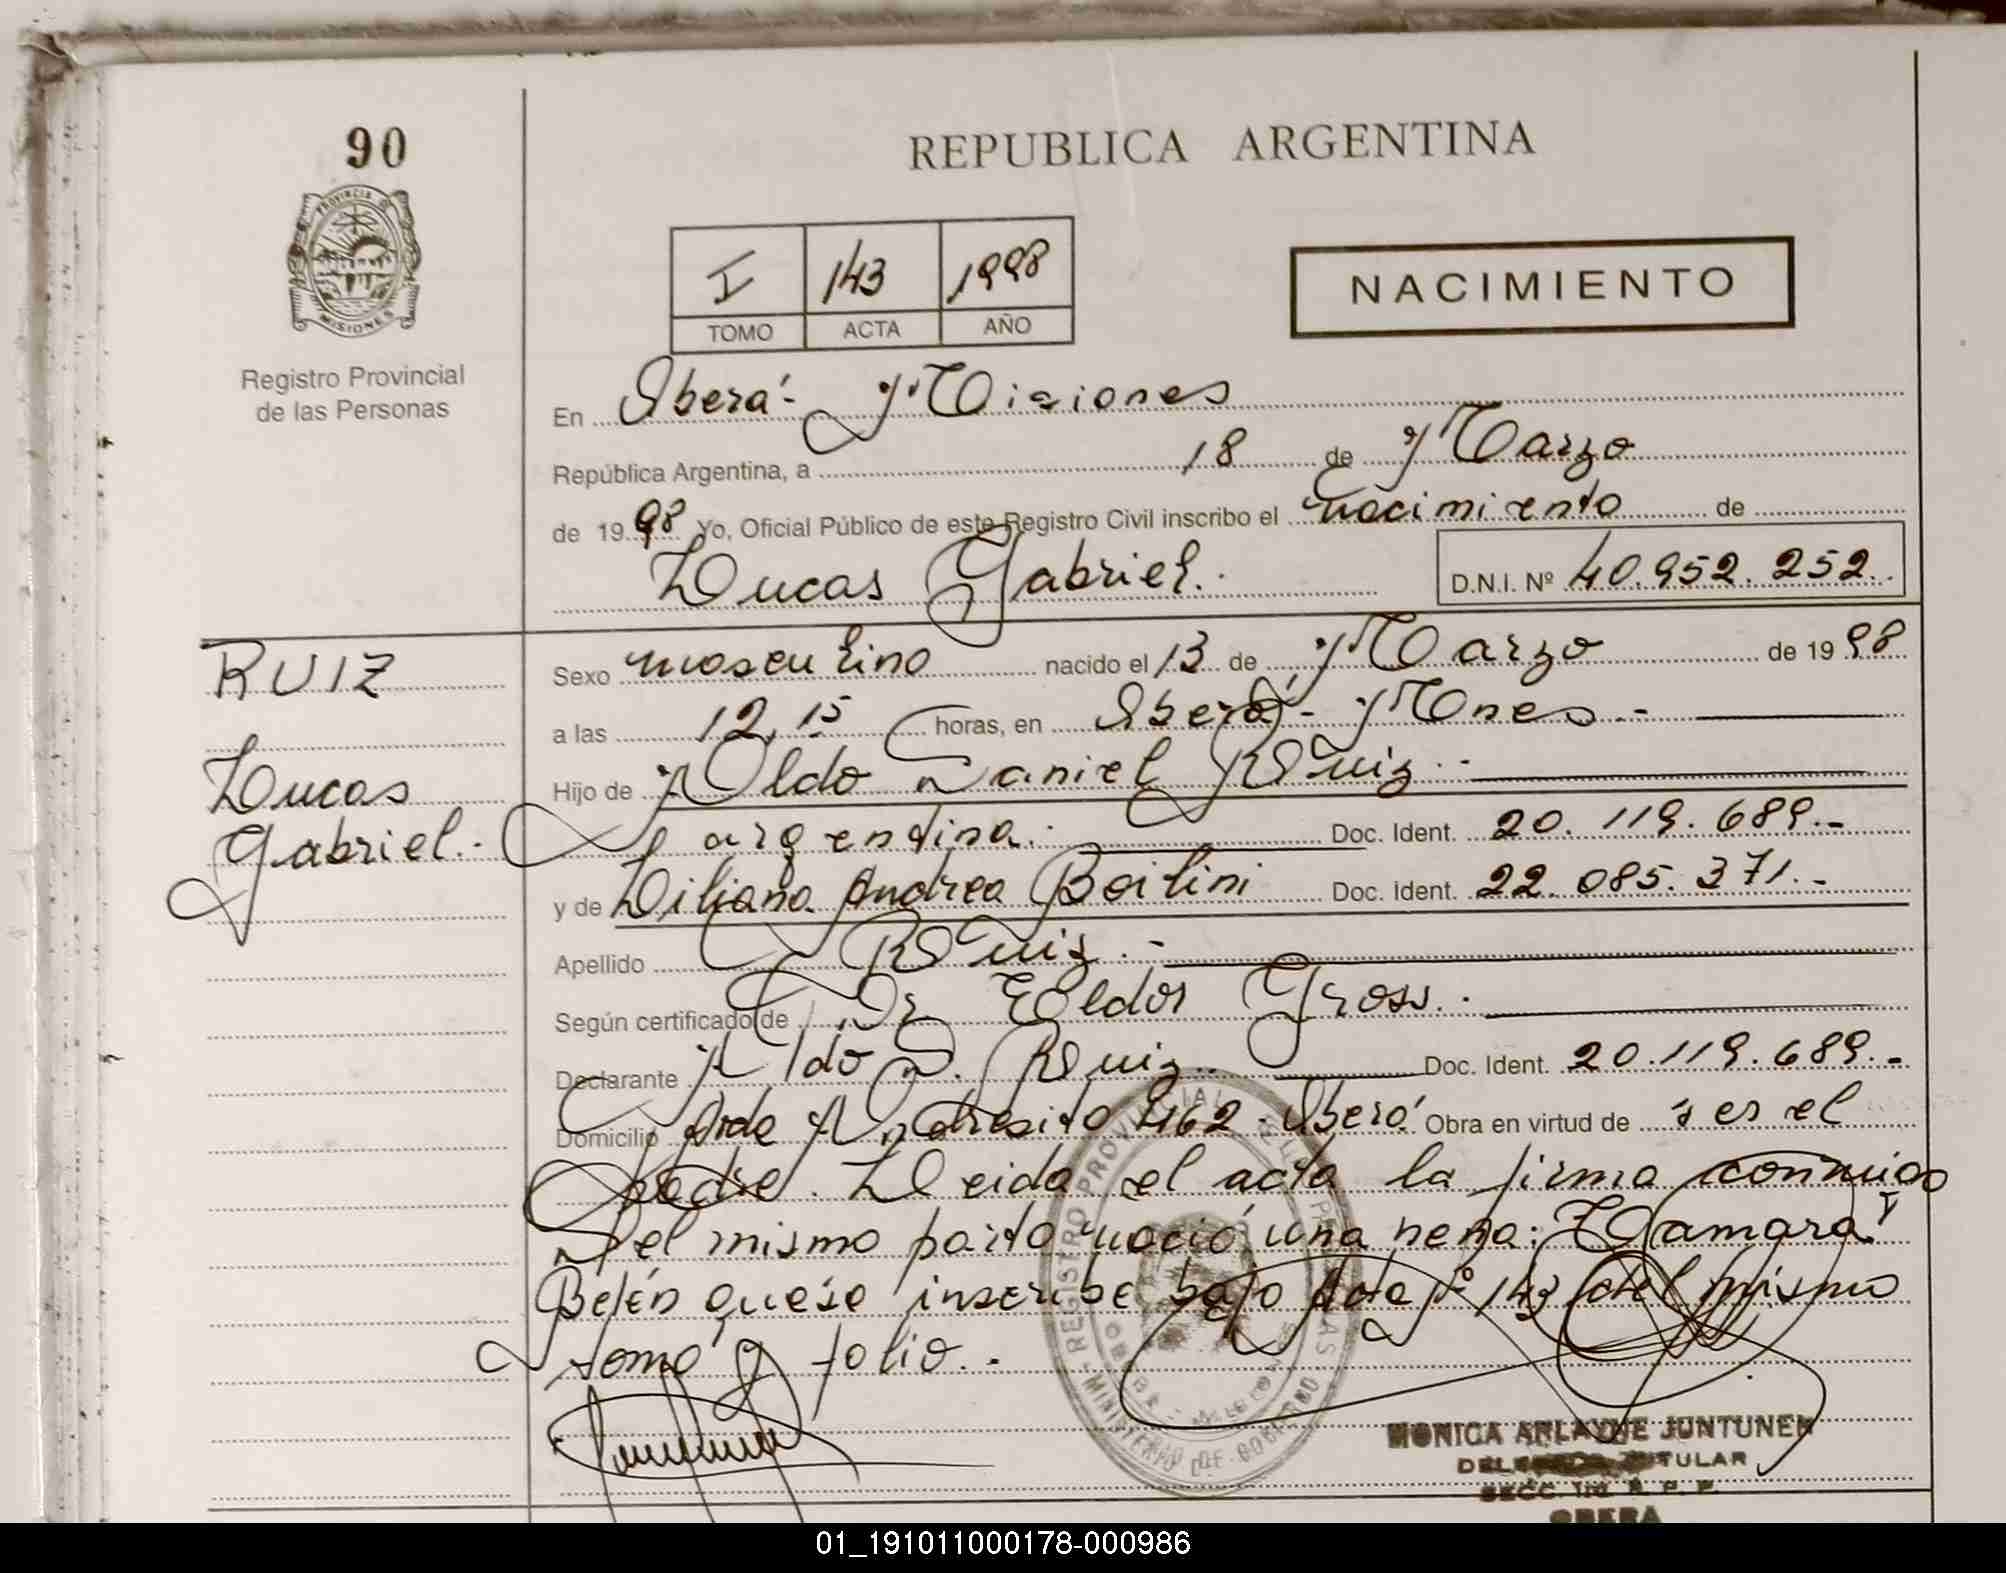 90
PROVINCIA D
MISIONES
Registro Provincial
de las Personas
REPUBLICA ARGENTINA
I 143 1998
TOMO ACTA AÑO
NACIMIENTO
En Oberá - Misiones
República Argentina, a 18 de Marzo
de 1998 Yo, Oficial Público de este Registro Civil inscribo el nacimiento de
Lucas Gabriel.
D.N.I. Nº 40.952.252.
RUIZ
Lucas
Gabriel.-
Sexo masculino nacido el 13 de Marzo de 1998
a las 12,15 horas, en Oberá - Mnes.-
Hijo de Aldo Daniel Ruiz.-
argentina. Doc. Ident. 20.119.689.-
y de Liliana Andrea Boilini Doc. Ident. 22.085.371.-
Apellido Ruiz.-
Según certificado de Dr Eldor Gross.
Declarante Aldo D. Ruiz. Doc. Ident. 20.119.689.-
Domicilio Avda Andresito 462 - Oberá Obra en virtud de s er el
padre. Leida el acta la firma conmigo
Del mismo parto nació una nena: Tamara
Belén que se inscribe bajo Acta nº 143 del mismo
tomo y folio.-
REGISTRO PROVINCIAL DE LAS PERSONAS
MINISTERIO DE GOBIERNO
MONICA ARLAYNE JUNTUNEN
TITULAR
SECC. R. P. P.
OBERA
01_191011000178-000986